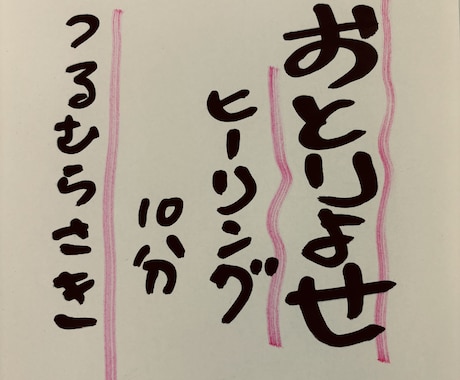 おとりよせ
ヒーリング
10分
つるむらさき